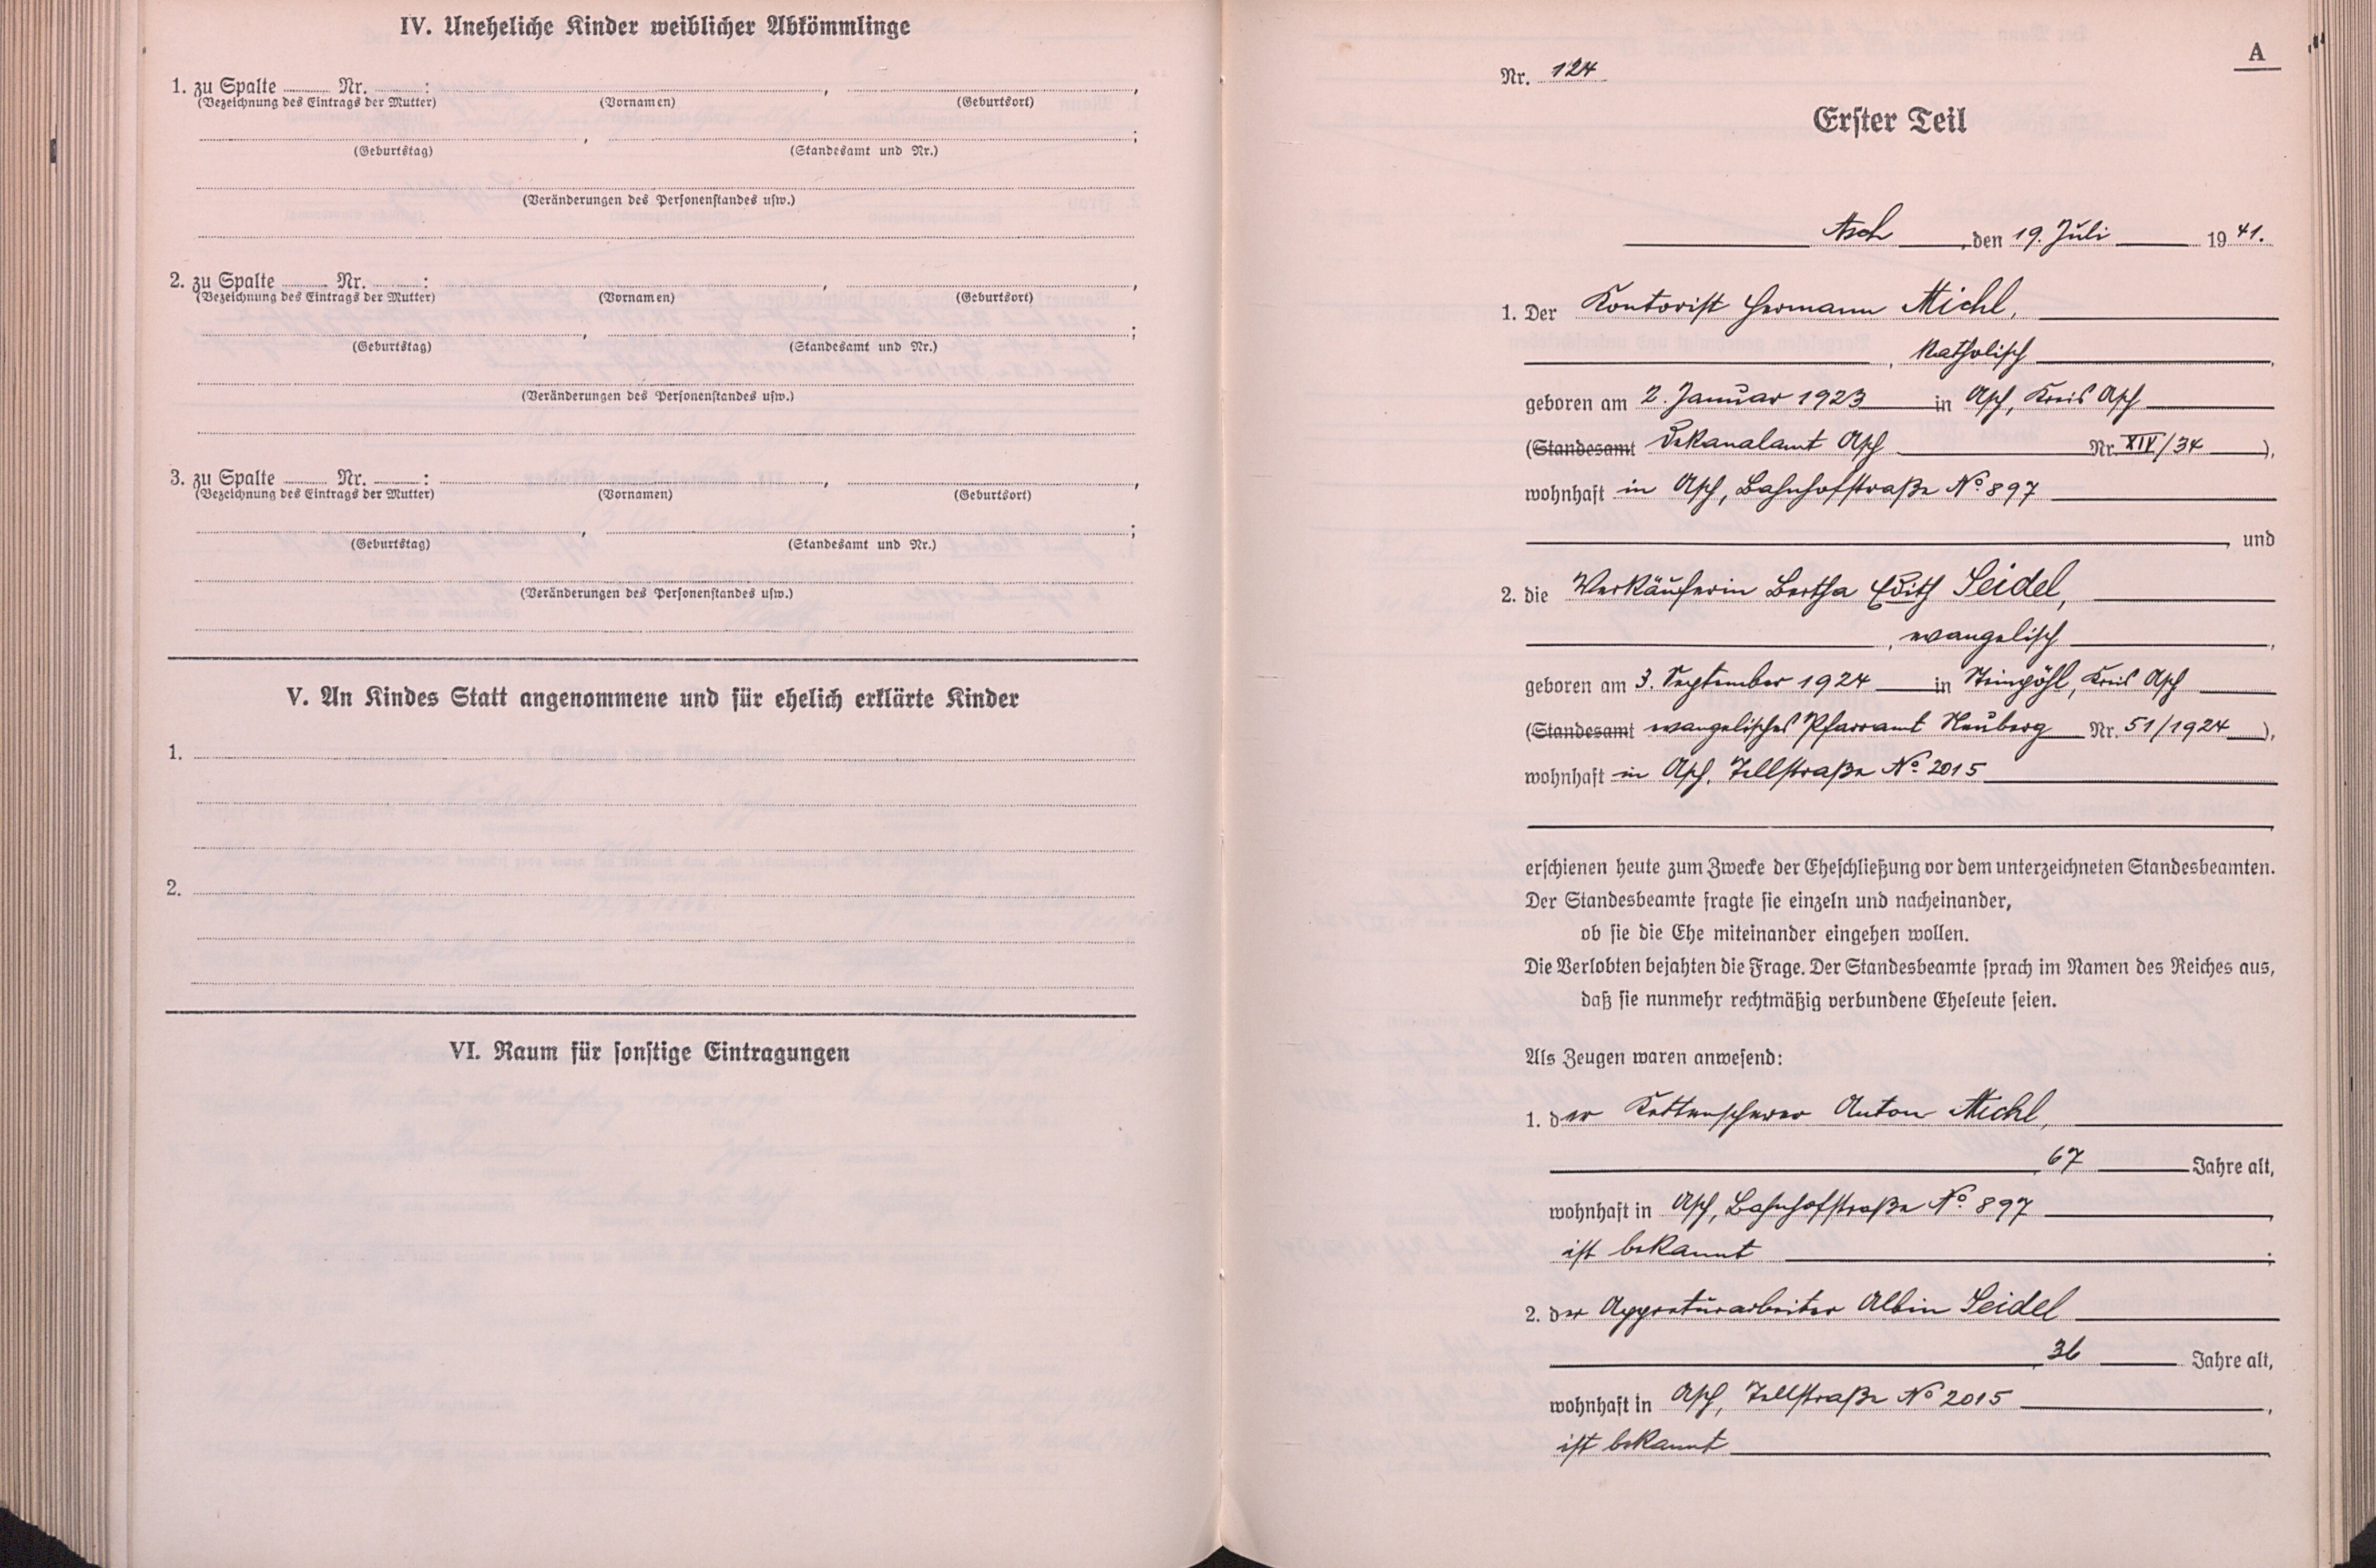 IV. Uneheliche Kinder weiblicher Abkömmlinge
1. zu Spalte ........ Nr. ........ : ........ , ........ ,
(Bezeichnung des Eintrags der Mutter) (Vornamen) (Geburtsort)
........ , ........ ;
(Geburtstag) (Standesamt und Nr.)
(Veränderungen des Personenstandes usw.)
2. zu Spalte ........ Nr. ........ : ........ , ........ ,
(Bezeichnung des Eintrags der Mutter) (Vornamen) (Geburtsort)
........ , ........ ;
(Geburtstag) (Standesamt und Nr.)
(Veränderungen des Personenstandes usw.)
3. zu Spalte ........ Nr. ........ : ........ , ........ ,
(Bezeichnung des Eintrags der Mutter) (Vornamen) (Geburtsort)
........ , ........ ;
(Geburtstag) (Standesamt und Nr.)
(Veränderungen des Personenstandes usw.)
V. An Kindes Statt angenommene und für ehelich erklärte Kinder
1.
2.
VI. Raum für sonstige Eintragungen
A
Nr. 124
Erster Teil
Asch, den 19. Juli 1941.
1. Der Kontorist Hermann Michl,
, katholisch,
geboren am 2. Januar 1923 in Asch, Kreis Asch
(Standesamt Dekanalamt Asch Nr. XIV/34),
wohnhaft in Asch, Bahnhofstraße No. 897
, und
2. die Verkäuferin Bertha Edith Seidel,
, evangelisch,
geboren am 3. September 1924 in Steinpöhl, Kreis Asch
(Standesamt evangelisches Pfarramt Neuberg Nr. 51/1924),
wohnhaft in Asch, Tellstraße No. 2015
,
erschienen heute zum Zwecke der Eheschließung vor dem unterzeichneten Standesbeamten.
Der Standesbeamte fragte sie einzeln und nacheinander,
ob sie die Ehe miteinander eingehen wollen.
Die Verlobten bejahten die Frage. Der Standesbeamte sprach im Namen des Reiches aus,
daß sie nunmehr rechtmäßig verbundene Eheleute seien.
Als Zeugen waren anwesend:
1. der Kettenscherer Anton Michl,
, 67 Jahre alt,
wohnhaft in Asch, Bahnhofstraße No. 897,
ist bekannt ;
2. der Appreturarbeiter Albin Seidel
, 36 Jahre alt,
wohnhaft in Asch, Tellstraße No 2015,
ist bekannt